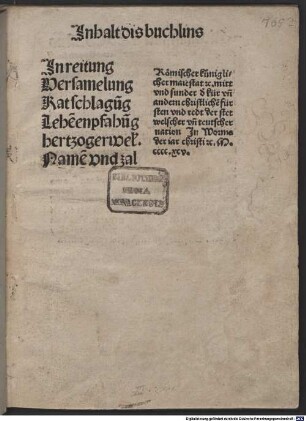 Inhalt dis buchlins
In reitung
Versamelung
Ratschlagūg
Lehēenpfahūg
hertzoger wel.
Namē vnd zal
Römischer künigli-
cher maiestat ꝛc. mitt
vnd sunder d kür vn̄
andern christlichē für
sten vnd redt der stet
welscher vn̄ teutscher
nation In Worms
der iar christi ꝛc. M.
cccc. xcv.
BIBLIOTHECA
REGIA
MONACENSIS